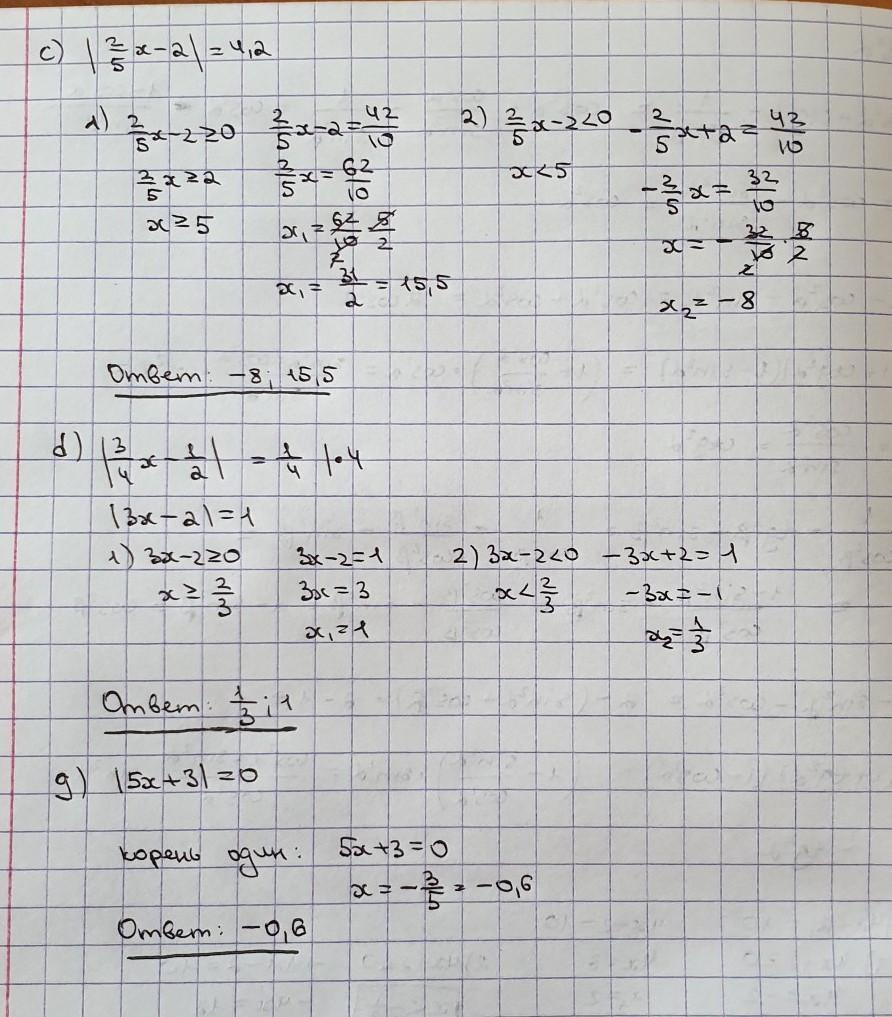 c) |2/5 x − 2| = 4,2
1) 2/5 x − 2 ≥ 0   2/5 x − 2 = 42/10   2) 2/5 x − 2 < 0   −2/5 x + 2 = 42/10
2/5 x ≥ 2   2/5 x = 62/10   x < 5   −2/5 x = 32/10
x ≥ 5   x₁ = 62/10 5/2   x = −32/10 · 5/2
2   2
x₁ = 31/2 = 15,5   x₂ = −8
Ответ: −8; 15,5
d) |3/4 x − 1/2| = 1/4 |•4
|3x − 2| = 1
1) 3x − 2 ≥ 0   3x − 2 = 1   2) 3x − 2 < 0   −3x + 2 = 1
x ≥ 2/3   3x = 3   x < 2/3   −3x = −1
x₁ = 1   x₂ = 1/3
Ответ: 1/3; 1
g) |5x + 3| = 0
корень один: 5x + 3 = 0
x = −3/5 = −0,6
Ответ: −0,6